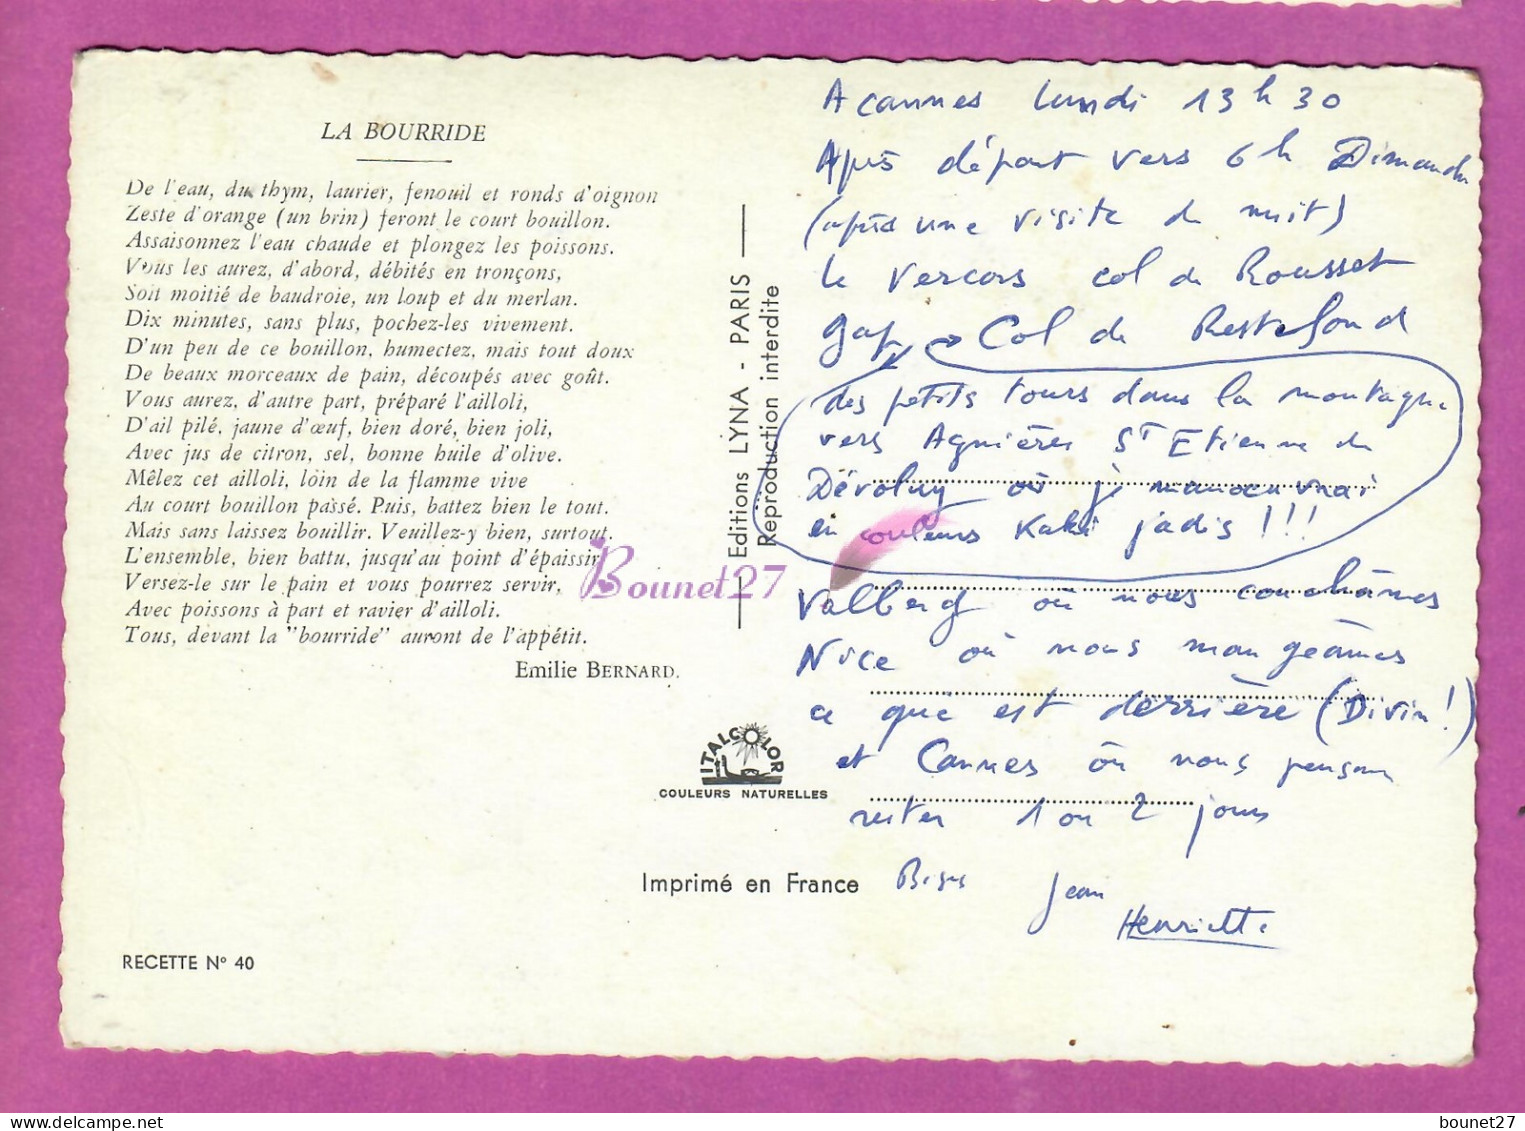 LA BOURRIDE
De l'eau, du thym, laurier, fenouil et ronds d'oignon
Zeste d'orange (un brin) feront le court bouillon.
Assaisonnez l'eau chaude et plongez les poissons.
Vous les aurez, d'abord, débités en tronçons,
Soit moitié de baudroie, un loup et du merlan.
Dix minutes, sans plus, pochez-les vivement.
D'un peu de ce bouillon, humectez, mais tout doux
De beaux morceaux de pain, découpés avec goût.
Vous aurez, d'autre part, préparé l'ailloli,
D'ail pilé, jaune d'œuf, bien doré, bien joli,
Avec jus de citron, sel, bonne huile d'olive.
Mêlez cet ailloli, loin de la flamme vive
Au court bouillon passé. Puis, battez bien le tout.
Mais sans laissez bouillir. Veuillez-y bien, surtout.
L'ensemble, bien battu, jusqu'au point d'épaissir
Versez-le sur le pain et vous pourrez servir,
Avec poissons à part et ravier d'ailloli.
Tous, devant la "bourride" auront de l'appétit.
Emilie BERNARD.
ITALCOLOR
COULEURS NATURELLES
Imprimé en France
RECETTE N° 40
Editions LYNA - PARIS
Reproduction interdite
A cannes lundi 13 h 30
Après départ vers 6 h Dimanche
(après une visite de nuit)
le Vercors col de Rousset
gap → Col de Restefond
des petits tours dans la montagne
vers Agnières St Etienne du
Dévoluy où je manoeuvrai
en couleurs Kaki jadis !!!
Valberg où nous couchâmes
Nice où nous mangeâmes
ce qui est derrière (Divin !)
et Cannes où nous pensons
rester 1 ou 2 jours
Bises Jean
Henriette
Bounet27
bounet27